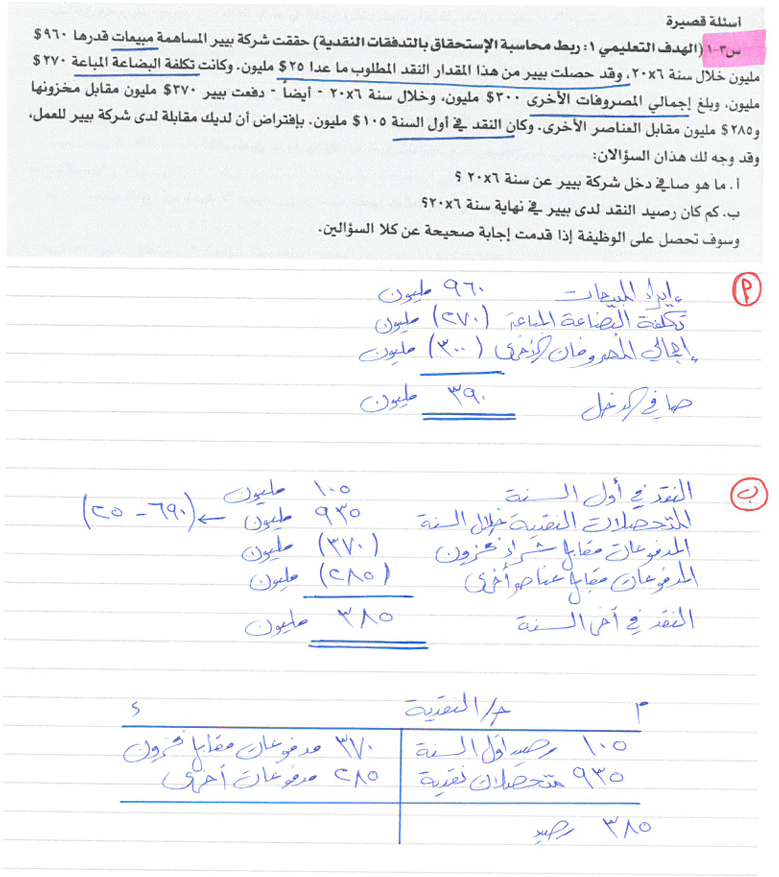 أسئلة قصيرة
س٣-١ (الهدف التعليمي ١: ربط محاسبة الإستحقاق بالتدفقات النقدية) حققت شركة بيير المساهمة مبيعات قدرها ٩٦٠$
مليون خلال سنة ٢٠x٦، وقد حصلت بيير من هذا المقدار النقد المطلوب ما عدا ٢٥$ مليون. وكانت تكلفة البضاعة المباعة ٢٧٠$
مليون، وبلغ إجمالي المصروفات الأخرى ٣٠٠$ مليون، وخلال سنة ٢٠x٦ - أيضاً - دفعت بيير ٣٧٠$ مليون مقابل مخزونها
و٢٨٥$ مليون مقابل العناصر الأخرى. وكان النقد في أول السنة ١٠٥$ مليون. بإفتراض أن لديك مقابلة لدى شركة بيير للعمل،
وقد وجه لك هذان السؤالان:
أ. ما هو صافي دخل شركة بيير عن سنة ٢٠x٦ ؟
ب. كم كان رصيد النقد لدى بيير في نهاية سنة ٢٠x٦؟
وسوف تحصل على الوظيفة إذا قدمت إجابة صحيحة عن كلا السؤالين.
أ إيراد المبيعات ٩٦٠ مليون
تكلفة البضاعة المباعة (٢٧٠) مليون
إجمالي المصروفات الأخرى (٣٠٠) مليون
صافي الدخل ٣٩٠ مليون
ب النقد في أول السنة ١٠٥ مليون
المتحصلات النقدية خلال السنة ٩٣٥ مليون ← (٦٩٠ - ٢٥)
المدفوعات مقابل شراء مخزون (٣٧٠) مليون
المدفوعات مقابل عناصر أخرى (٢٨٥) مليون
النقد في آخر السنة ٣٨٥ مليون
م ح/ النقدية د
١٠٥ رصيد أول السنة ٣٧٠ مدفوعات مقابل مخزون
٩٣٥ متحصلات نقدية ٢٨٥ مدفوعات أخرى
٣٨٥ رصيد